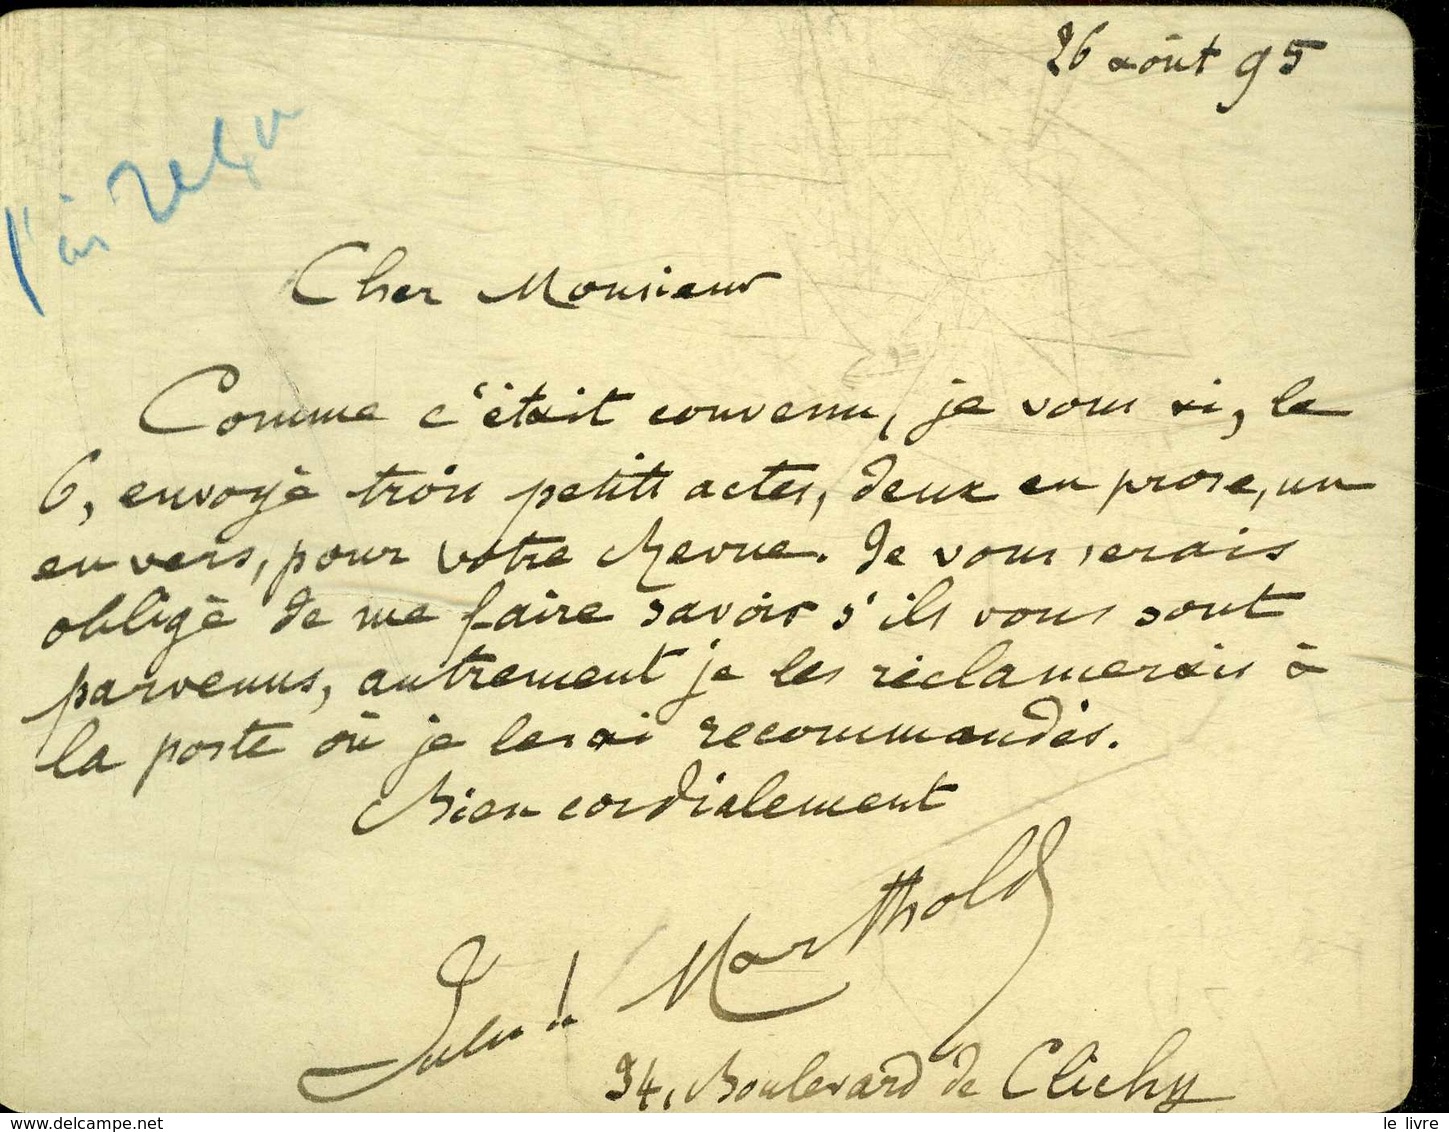 26 août 95
j'ai reçu
Cher Monsieur
Comme c'était convenu, je vous ai, le
6, envoyé trois petits actes, deux en prose, un
en vers, pour votre Revue. Je vous serais
obligé de me faire savoir s'ils vous sont
parvenus, autrement je les réclamerais à
la poste où je les ai recommandés.
Bien cordialement
Jules de Marthold
34, Boulevard de Clichy
www.delcampe.net
le livre